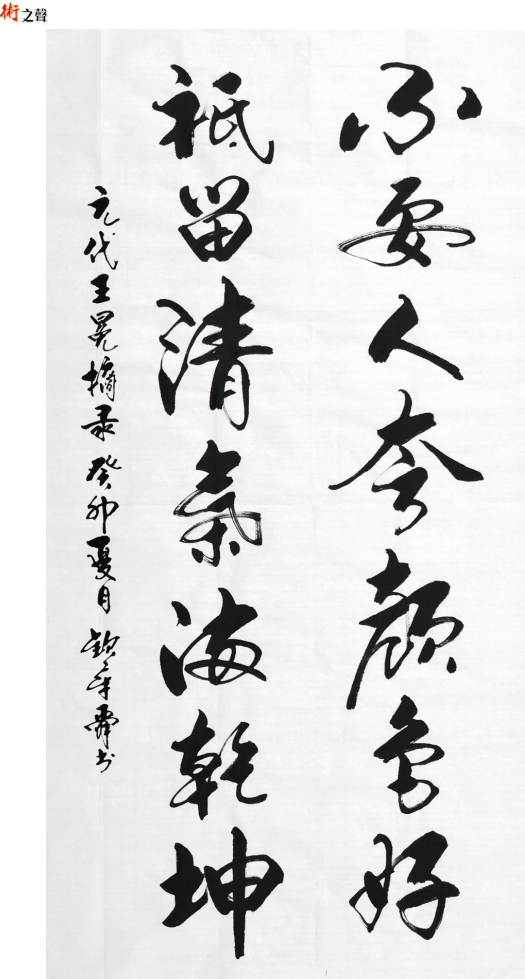 術之聲
不要人夸顔色好
祗留清氣滿乾坤
元代王冕摘录癸卯夏月
书